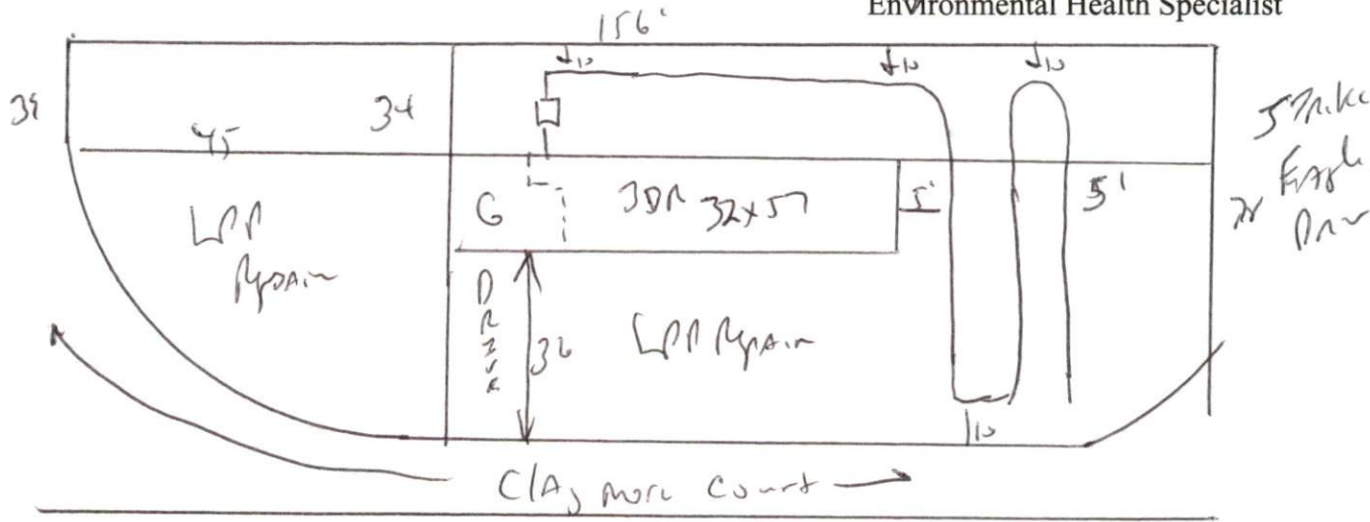 Environmental Health Specialist
156'
↓10 ↓10 ↓10
39
34
45
G
3DR 32x57
5'
5'
Strike
Eagle
Drive
LPP
Repair
DRIVE
36
LPP Repair
10
Claymore Court →